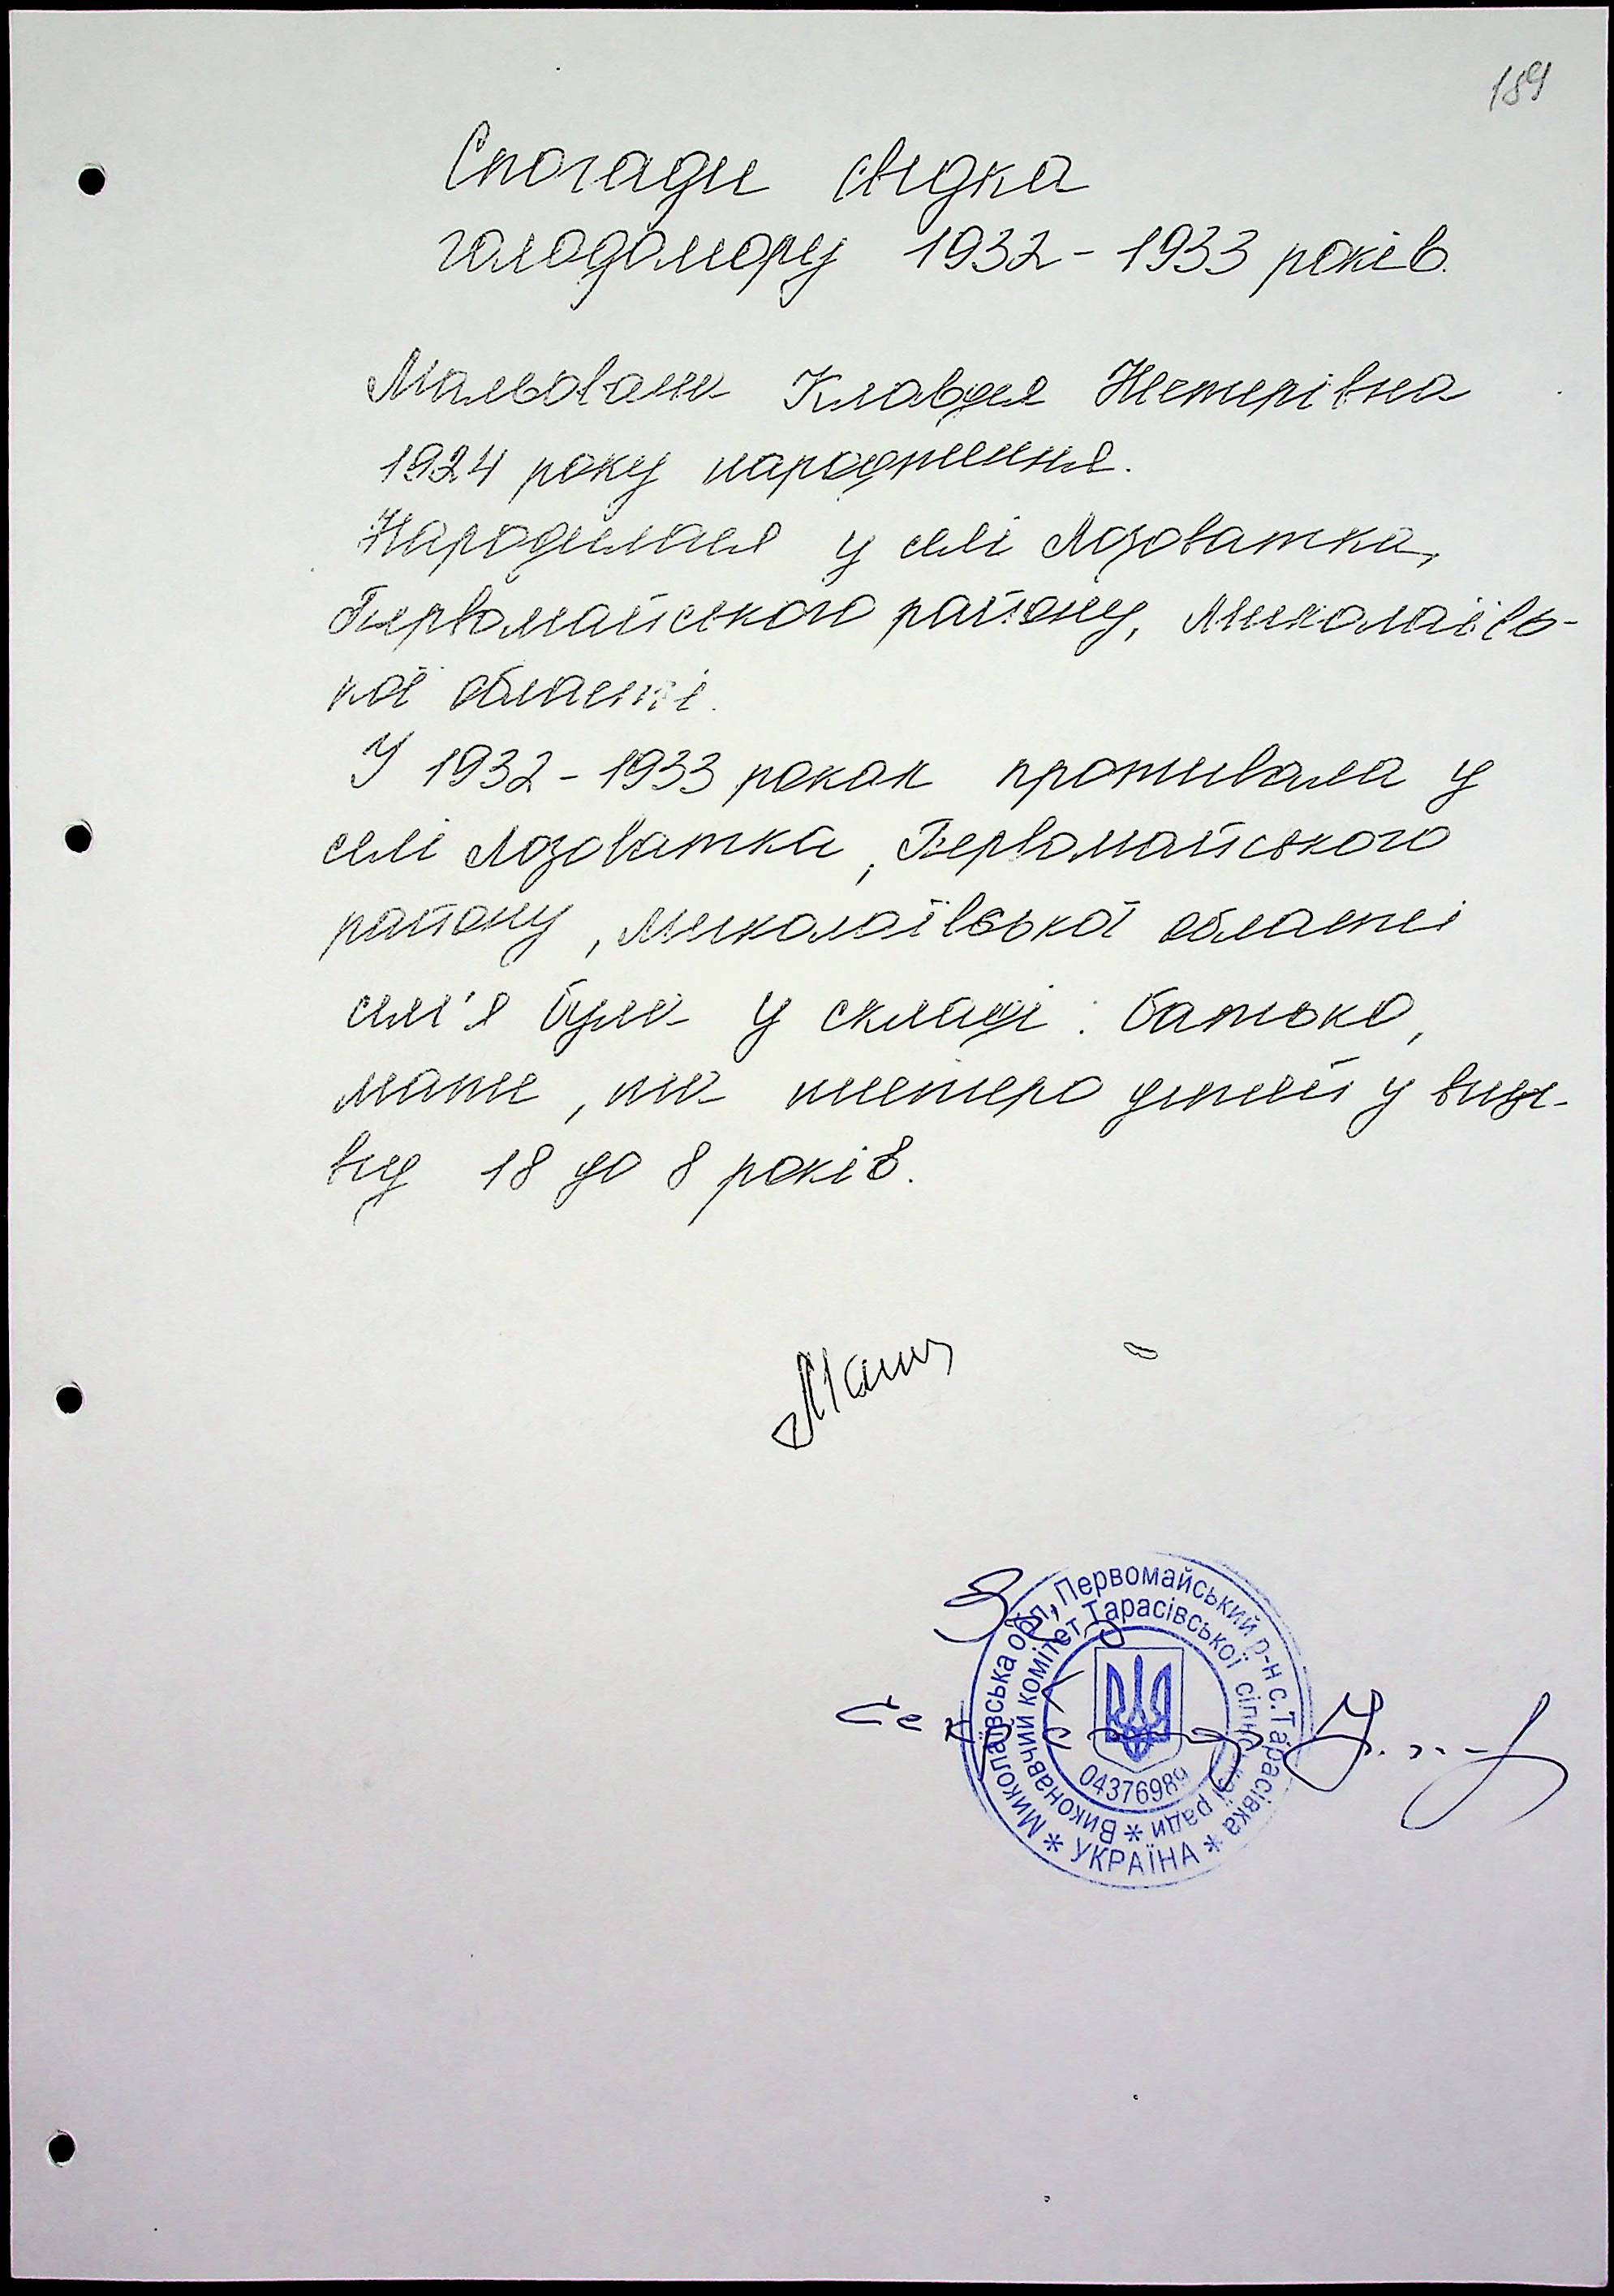 189
Спогади свідка
голодомору 1932-1933 років.
Мальована Клавдія Нестерівна
1924 року народження.
Народилася у селі Лозоватка,
Первомайського району, Миколаївсь-
кої області.
У 1932-1933 роках проживала у
селі Лозоватка, Первомайського
району, Миколаївської області
сім'я була у складі: батько,
мати, та шестеро дітей у віці
від 18 до 8 років.
Секретар
Миколаївська обл., Первомайський р-н с.Тарасівка
* УКРАЇНА *
Виконавчий комітет Тарасівської сільської ради *
04376989